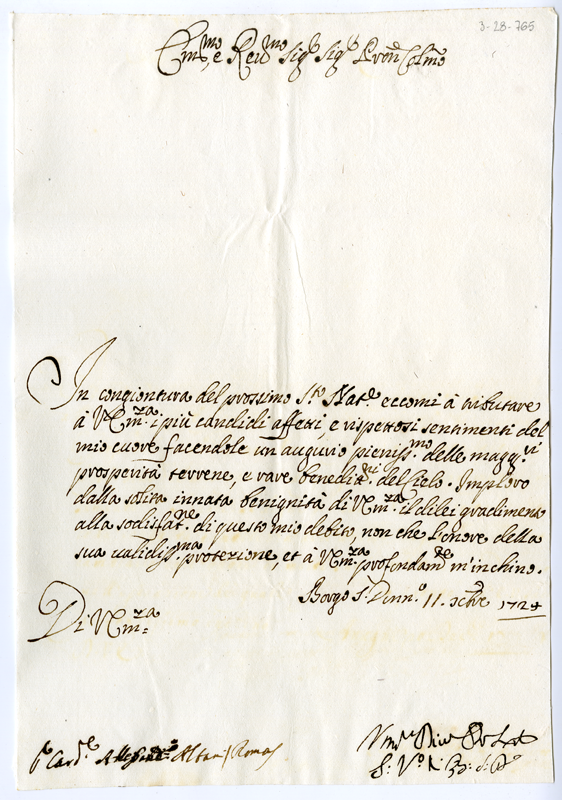 3-28-765
Em.mo e Rev.mo Sig.r Sig.r Pron Colmo
In congiontura del prossimo S.to Nat.e eccomi à tributare
à V. Em.za i più candidi affetti, e rispettosi sentimenti del
mio cuore facendole un augurio pieniss.mo delle magg.ri
prosperità terrene, e rare benediz.ni del Cielo. Imploro
dalla solita innata benignità di V. Em.za il di lei gradimento
alla sodisfat.ne di questo mio debito, non che l'onore della
sua validiss.ma protezione, et à V. Em.za profondam.te m'inchino.
Borgo S. Donn.o 11. Xbre 1724
Di V. Em.za
Card.e Aless.ro Albani Roma